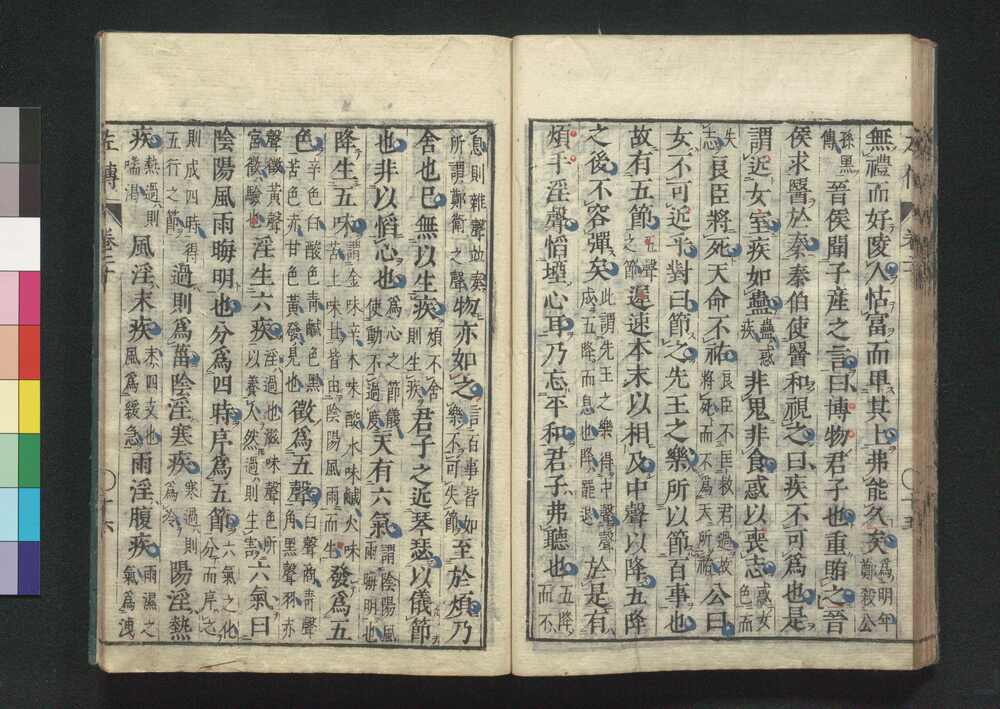 無禮而好陵人怙富而卑其上弗能久矣爲明年鄭殺公
孫黑傳晉侯聞子產之言曰博物君子也重賄之晉
侯求醫於秦秦伯使醫和視之曰疾不可爲也是
謂近女室疾如蠱蠱惑疾非鬼非食惑以喪志惑女色而
失志良臣將死天命不祐良臣不匡救君過故將死而不爲天所祐公曰
女不可近乎對曰節之先王之樂所以節百事也
故有五節五聲之節遲速本末以相及中聲以降五降
之後不容彈矣此謂先王之樂得中聲聲成五降而息也降罷退於是有
煩手淫聲慆堙心耳乃忘平和君子弗聽也五降而不
息則雜聲並奏所謂鄭衛之聲物亦如之言百事皆如樂不可失節至於煩乃
舍也已無以生疾煩不舍則生疾君子之近琴瑟以儀節
也非以慆心也爲心之節儀使動不過度天有六氣謂陰陽風雨晦明也
降生五味謂金味辛木味酸水味鹹火味苦土味甘皆由陰陽風雨而生發爲五
色辛色白酸色青鹹色黑苦色赤甘色黃發見也徵爲五聲白聲商青聲角黑聲羽赤
聲徵黃聲宮徵驗也淫生六疾淫過也滋味聲色所以養人然過則生害六氣曰
陰陽風雨晦明也分爲四時序爲五節六氣之化分而序之
則成四時得五行之節過則爲菑陰淫寒疾寒過則爲冷陽淫熱
疾熱過則喘渴風淫末疾末四支也風爲緩急雨淫腹疾雨濕之氣爲洩
左傳 卷二十 ○十六